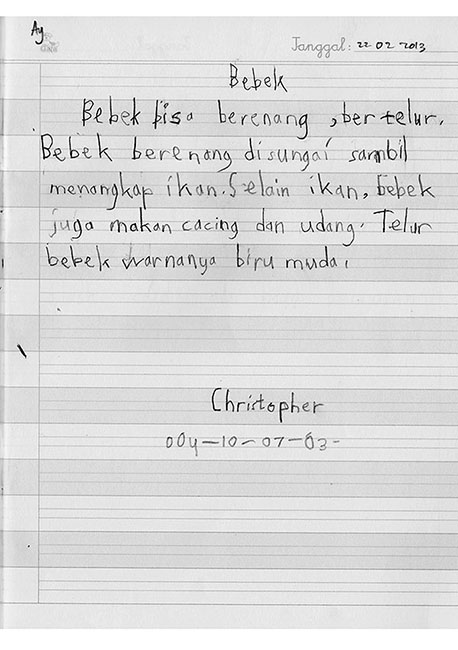 Ay
Tanggal: 22 02 2013
Bebek
Bebek bisa berenang, bertelur.
Bebek berenang disungai sambil
menangkap ikan. Selain ikan, bebek
juga makan cacing dan udang. Telur
bebek warnanya biru muda.
Christopher
004-10-07-03-